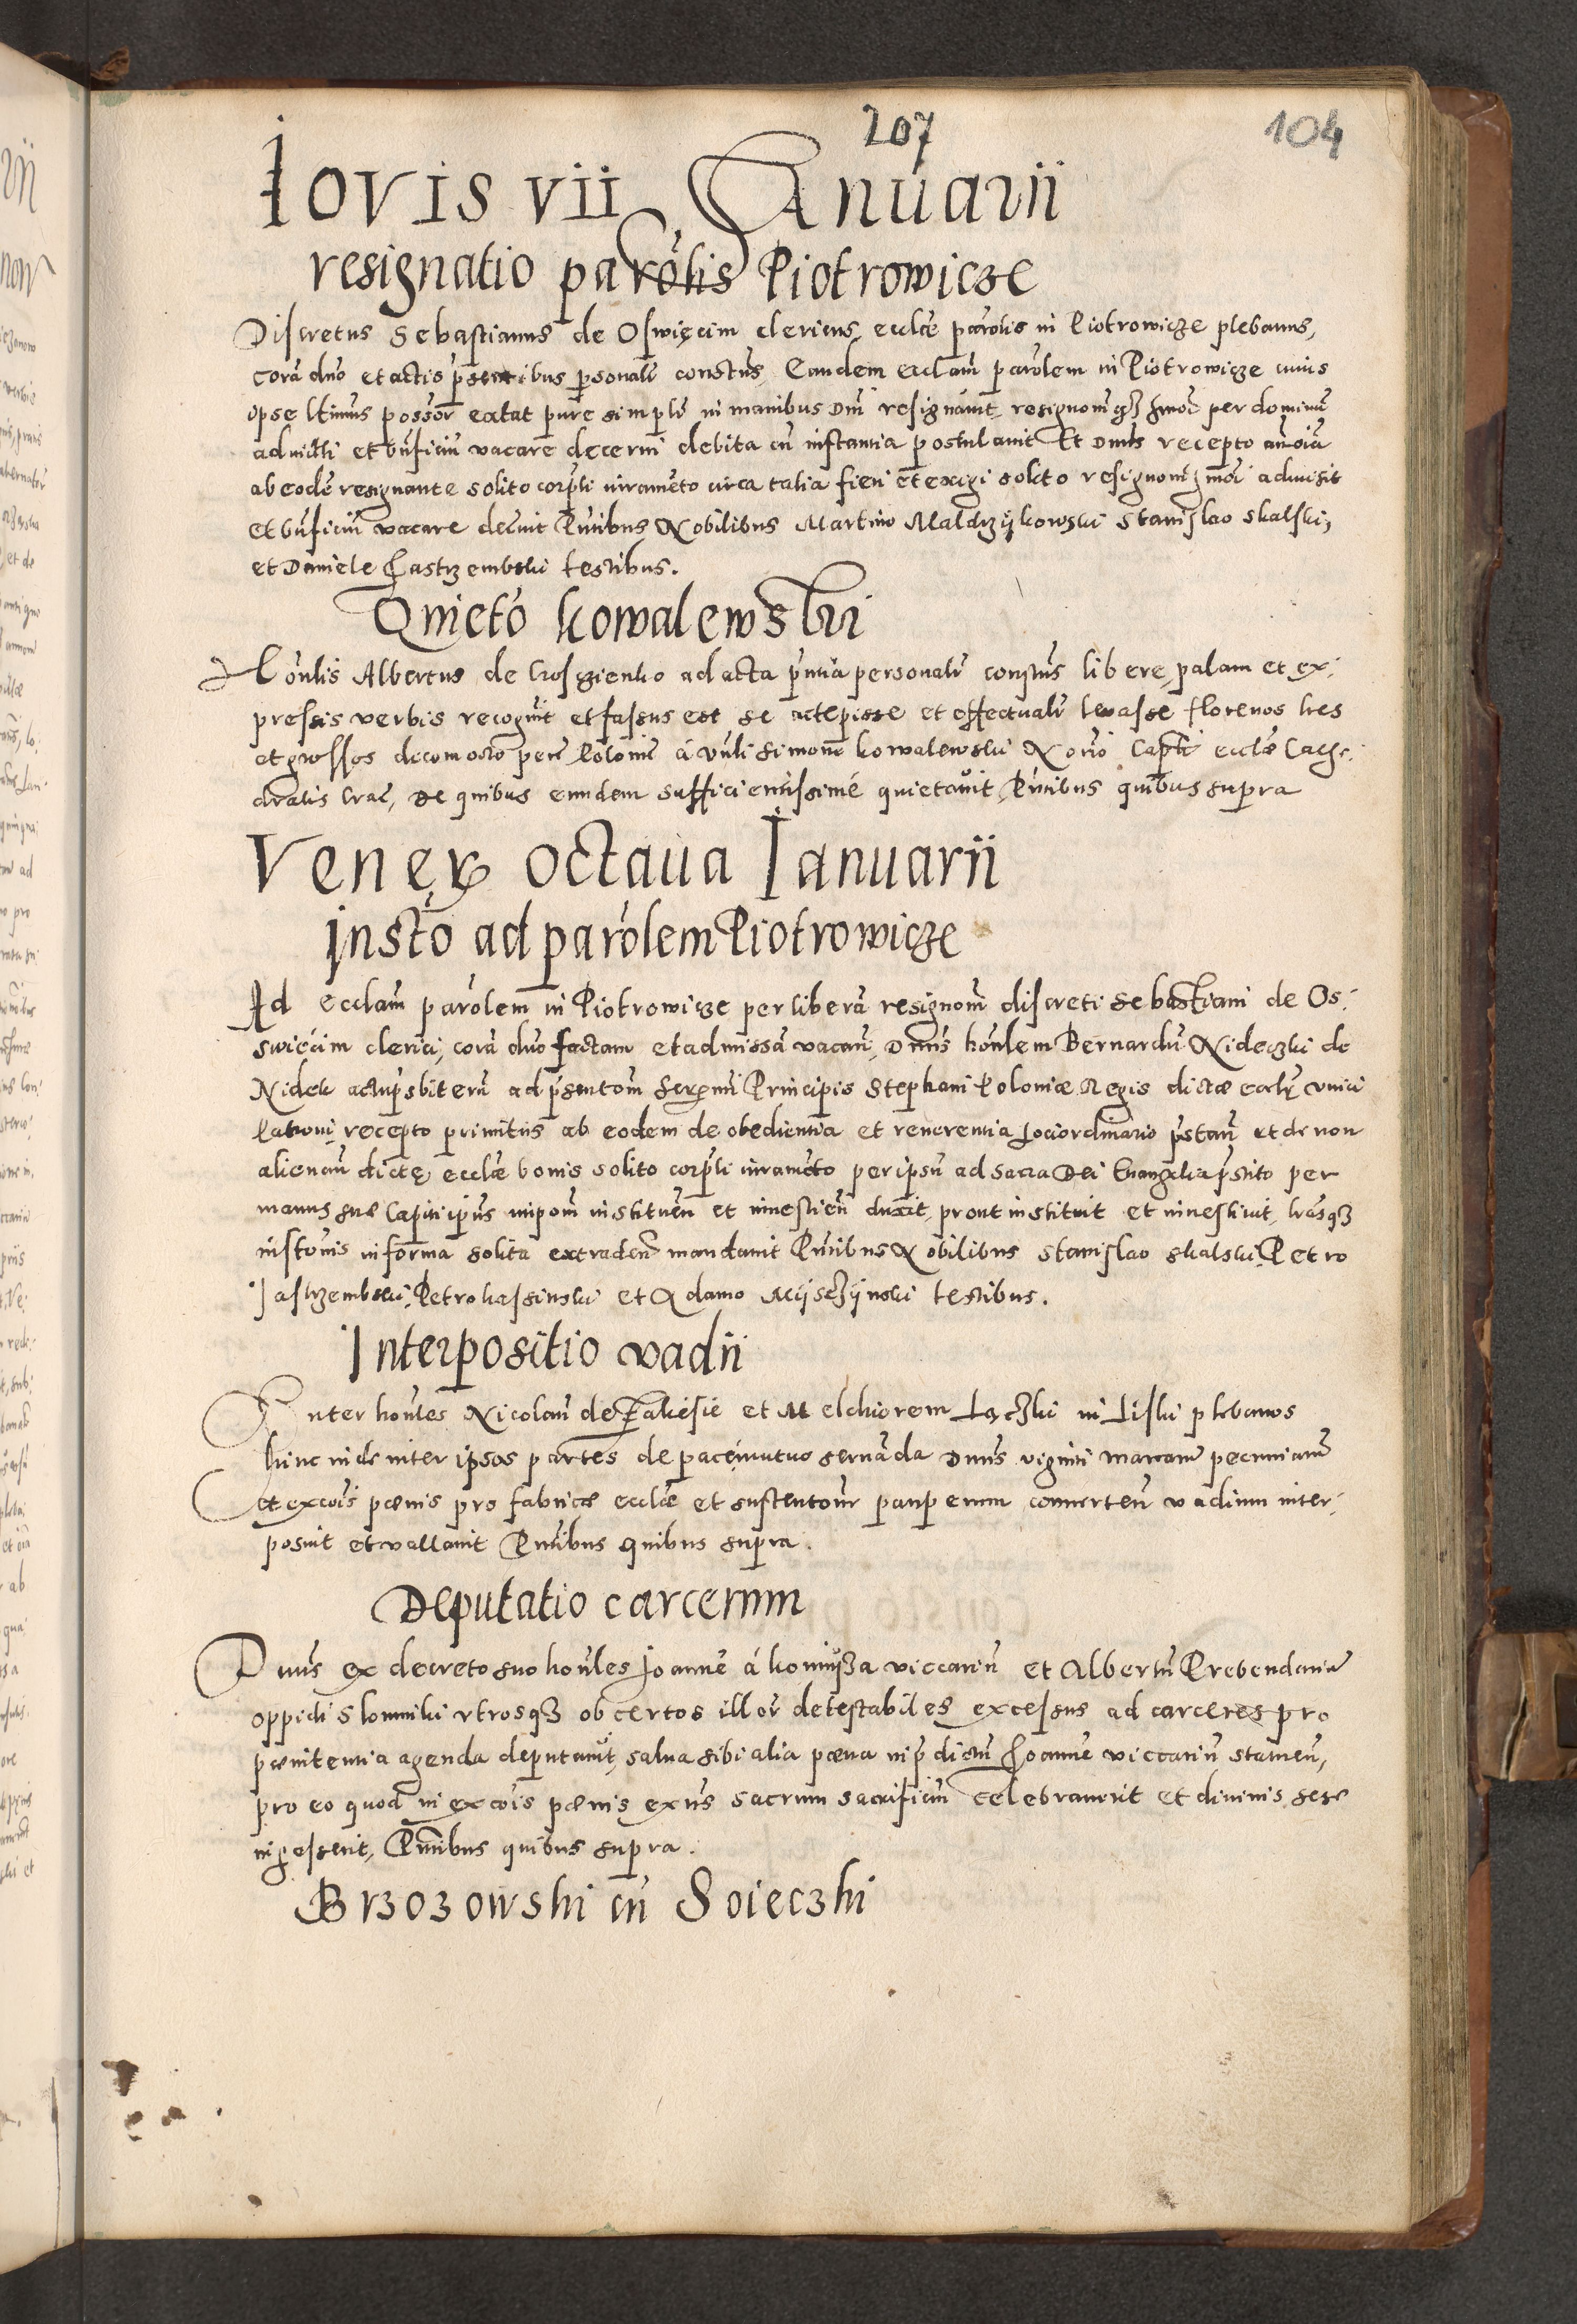 207
104
Iovis vii Ianuarii
resignatio parolis Piotrowicze
Discretus Sebastianus de Oswięcim clericus, eccłae parolis in Piotrowicze plebanus,
corā dno et actis pntibus psonalr constus, Eandem ecclam parolem in Piotrowicze cuius
ipse ltimus possor extat pure simplr in manibus Dni resignavit, resignonem
admitti et bnficiū vacare decerni debita cū instantia postulavit Et Dnus recepto
ab eodē resignante solito corpli iuramēto circa talia fieri et exigi solito resignonē hmoi admisit
et bnficiū vacare decrevit Pntibus Nobilibus Martino Maldrzÿkowski Stanislao Skalski,
et Daniele Jastrzembski testibus.
Quietō Kowalewski
Honlis Albertus de Krosgienko ad acta pntia personalr constus libere, palam et ex:
pressis verbis recognovit et fassus est se accepisse et effectualr levasse florenos tres
et grossos decem octo pecūe Polonie á Vnli Simone Kowalewski Norio Capli ecclae Cathe:
dralis Crac, De quibus eundem sufficientissimé quietavit, Pntibus quibus supra
Venerꝭ octava Ianuarii
Instō ad parolem Piotrowicze
Ad ecclam parolem in Piotrowicze per liberā resignonem discreti Sebastiani de Os:
swięcim clerici, corā dno factam et admissā vacan, Dnus honlem Bernardū Nideczki de
Nidek actu psbiterū ad psentonem Serenmi Principis Stephani Poloniae Regis dictae ecclę vnici
Patroni, recepto primitus ab eodem de obedientia et reverentia Loci ordinario pstan et de non
alienan dictę ecclae bonis solito corpli iuramēto per ipsū ad sacra Dei Evangelia pstito per
manus suae capiti ipius imponem instituen et investien duxit, prout instituit et investivit, lrasqꝫ
instonis in forma solita extraden mandavit Pntibus Nobilibus Stanislao Skalski, Petro
Jastrzembski, Petro Kassinski et Adamo Mÿschÿnski testibus.
Interpositio vadii
Inter honles Nicolaū de Zakliesie et Melchiorem Łączki in Liski plebanos
hinc inde inter ipsas partes de pace mutuo servāda Dnus viginti marcarū pecuniarū
et excois paenis pro fabricae ecclae et sustentone pauperum converten vadium inter:
posuit et vallavit Pntibus quibus supra.
Deputatio carcerum
Dnus ex decreto suo honles Joannē á Koniusza viccariū et Albertū Prebendariū
oppidi Slomniki vtrosqꝫ ob certos illor detestabiles excessus ad carceres pro
paenitentia agenda deputavit, salva sibi alia paena in pdictū Joannē viccariū statuen,
pro eo quod in excois paenis exns sacrum sacrificiū celebraverit et divinis sese
ingesserit, Pntibus quibus supra.
Brzozowski cū Soieczki